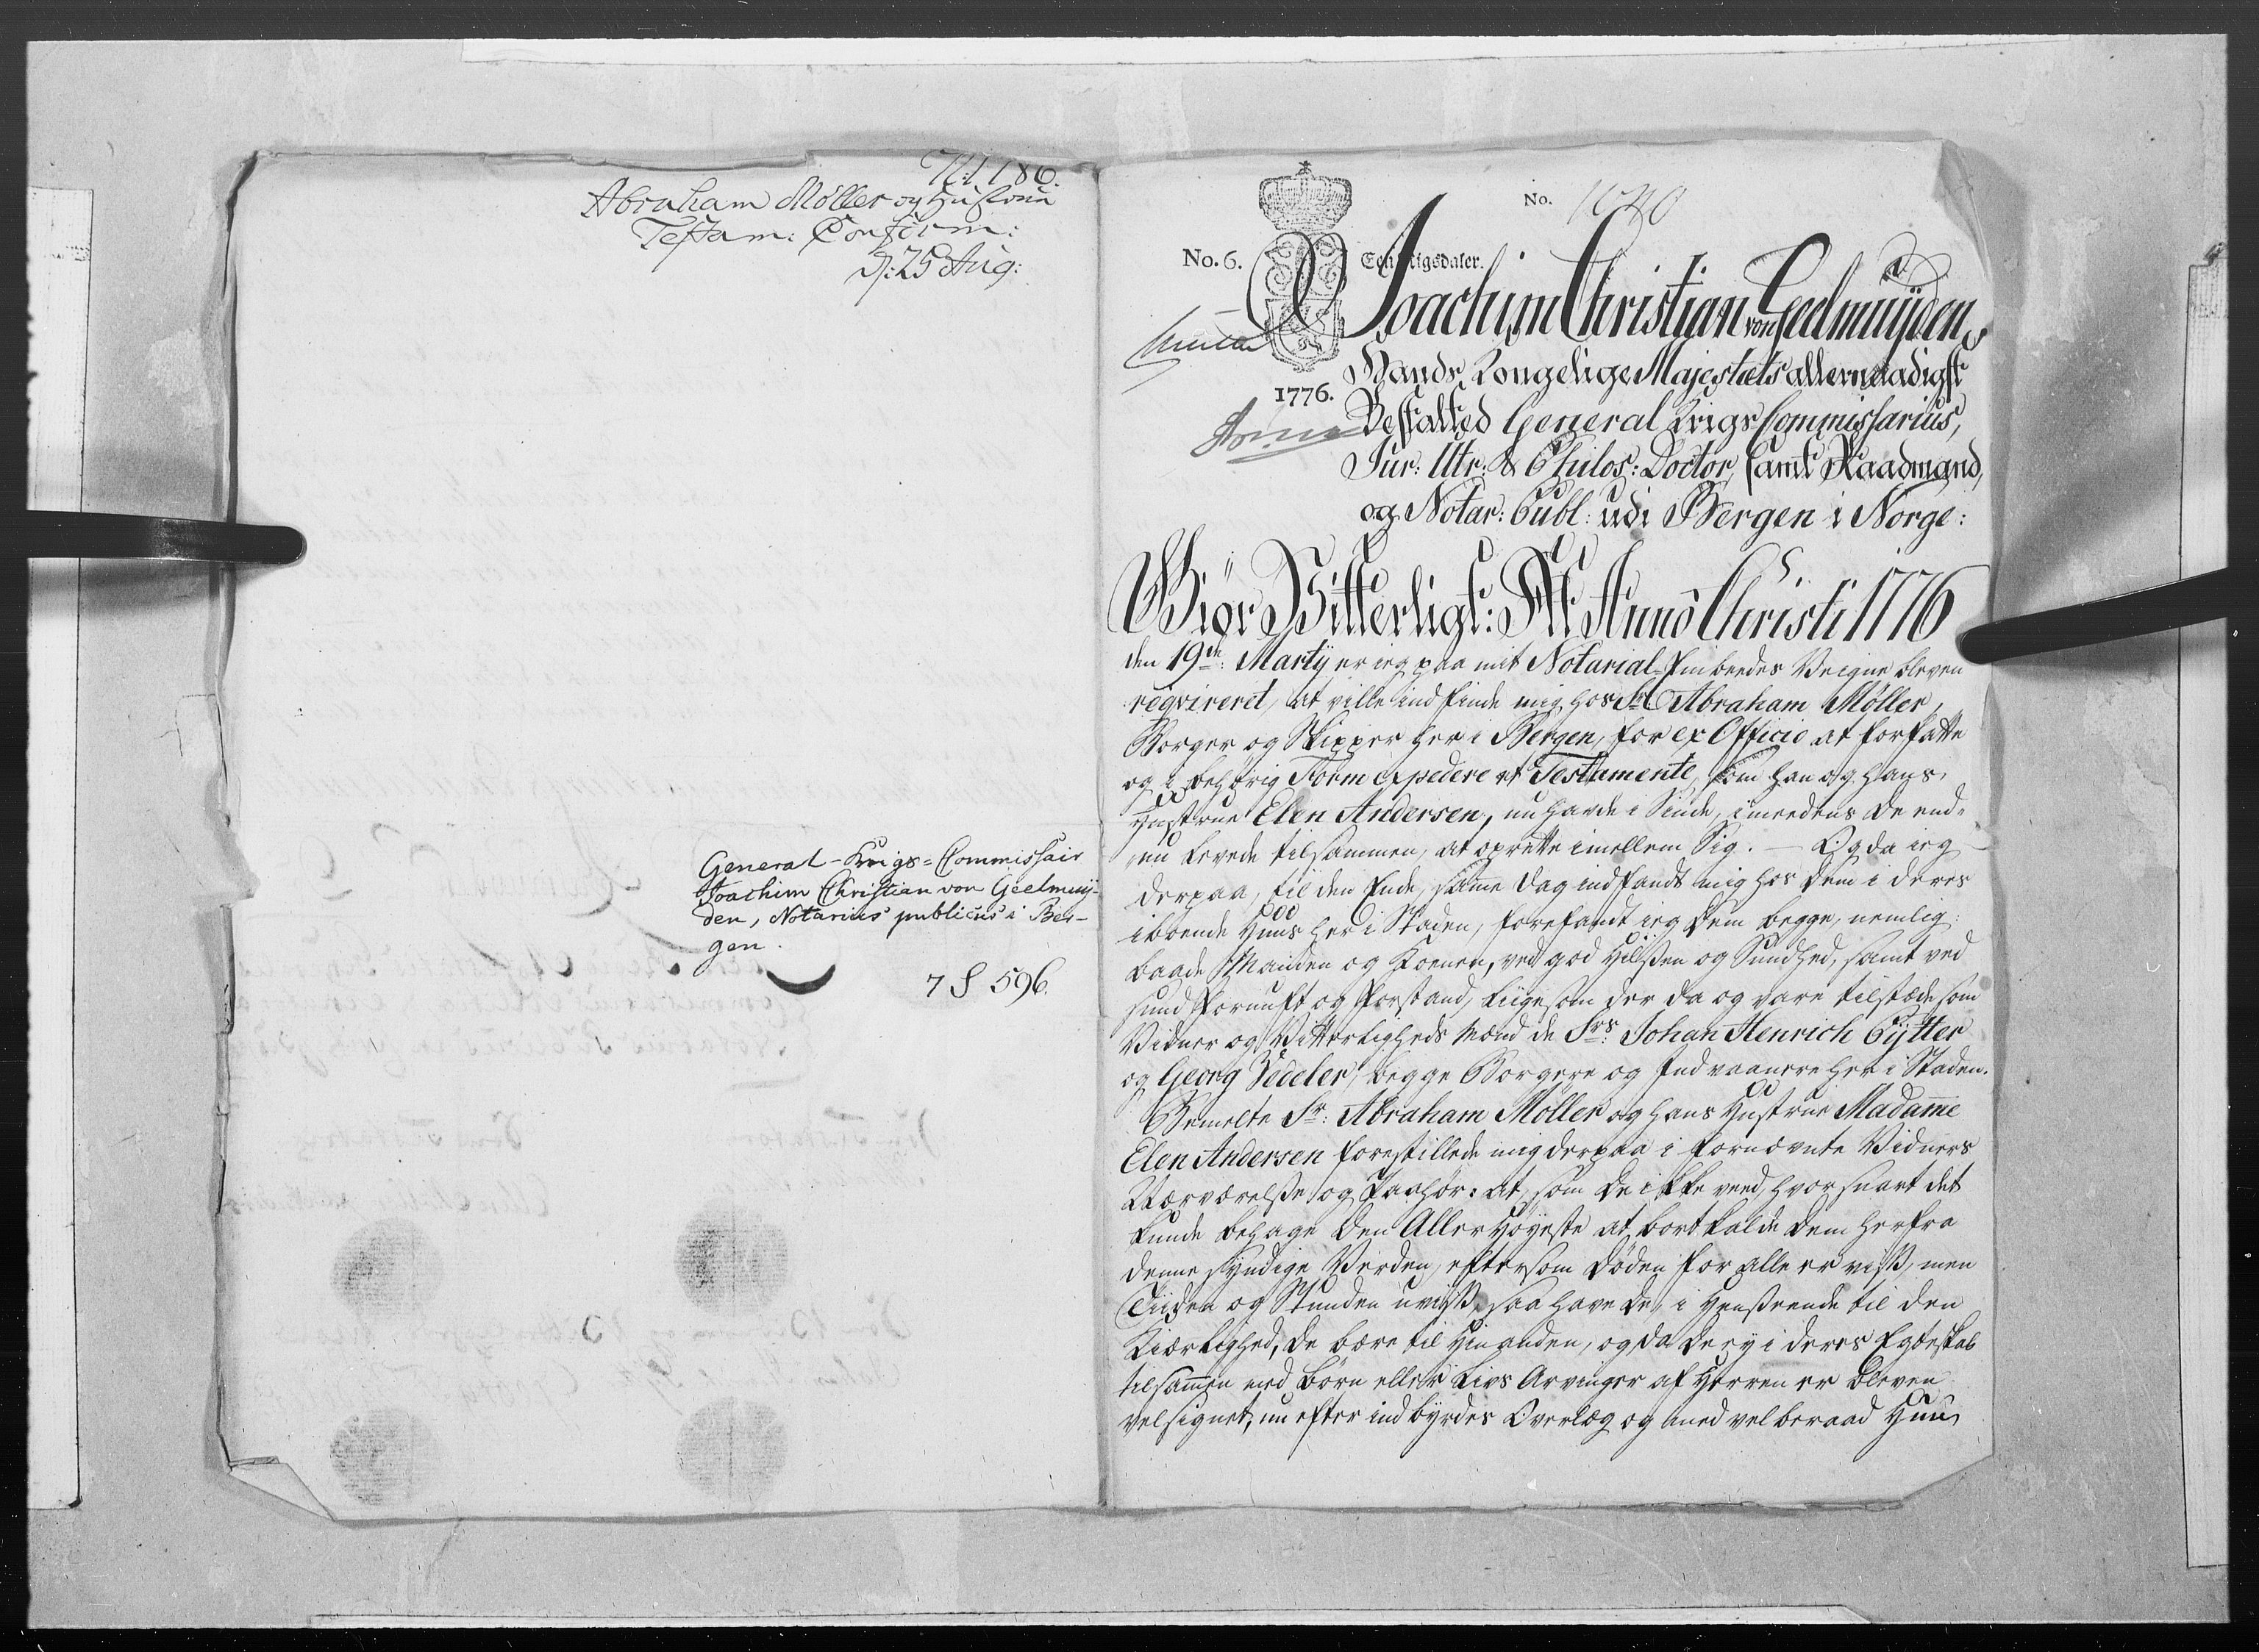 N: 1186.
Abraham Møller og Hustrues
Testam: Confirm:
d: 25 Aug:
General-Krigs-Commissair
Joachim Christian von Geelmuy-
den, Notarius publicus i Ber-
gen.
7 S 596.
No. 1040
No. 6. Een Rigsdaler.
1776.
Joachim Christian von Geelmuÿden,
Hands Kongelige Majestæts allernaadigst
Bestalted General Krigs Commissarius,
Jur: Utr: & Philos: Doctor, samt Raadmand,
og Notar: Publ: udi Bergen i Norge:
Giør Vitterligt: At Anno Christi 1776
den 19de: Martij er ieg paa mit Notarial-Embeedes Veigne bleven
reqvireret, at ville indfinde mig hos Sr. Abraham Møller,
Borger og Skipper her i Bergen, for ex Officio at forfatte
og i behørig Form expedere et Testamente, som han og hans
Hustrue Elen Andersen, nu havde i Sinde, imeedens de end-
nu levede tilsammen, at oprette imellem Sig. — Og da ieg
derpaa, til den Ende, samme Dag indfandt mig hos dem i deres
iboende Huus her i Staden, forefandt ieg dem begge, nemlig:
baade Manden og Konen, ved god Hilsen og Sundhed, samt ved
sund Fornuft og Forstand, liigesom der da og vare tilstæde som
Vidner og Vitterligheds Mænd de Srs: Johan Henrich Pÿtter
og Georg Vedeler, begge Borgere og Indvaanere her i Staden.
Bemelte Sr: Abraham Møller og hans Hustrue Madame
Elen Andersen forestillede mig derpaa i fornævnte Vidners
Nærværelse og Paahør: at, som de ikke veed, hvor snart det
kunde behage Den Allerhøyeste at bortkalde dem herfra
denne syndige Verden, eftersom Døden for alle er vis, men
Tiiden og Stunden uvis, saa have de, i Henseende til den
Kiærlighed, de bære til hinanden, og da de ey i deres Egteskab
tilsammen med Børn eller Livs Arvinger af Herren er bleven
velsignet, nu efter indbyrdes Overlæg og med velberaad Huu